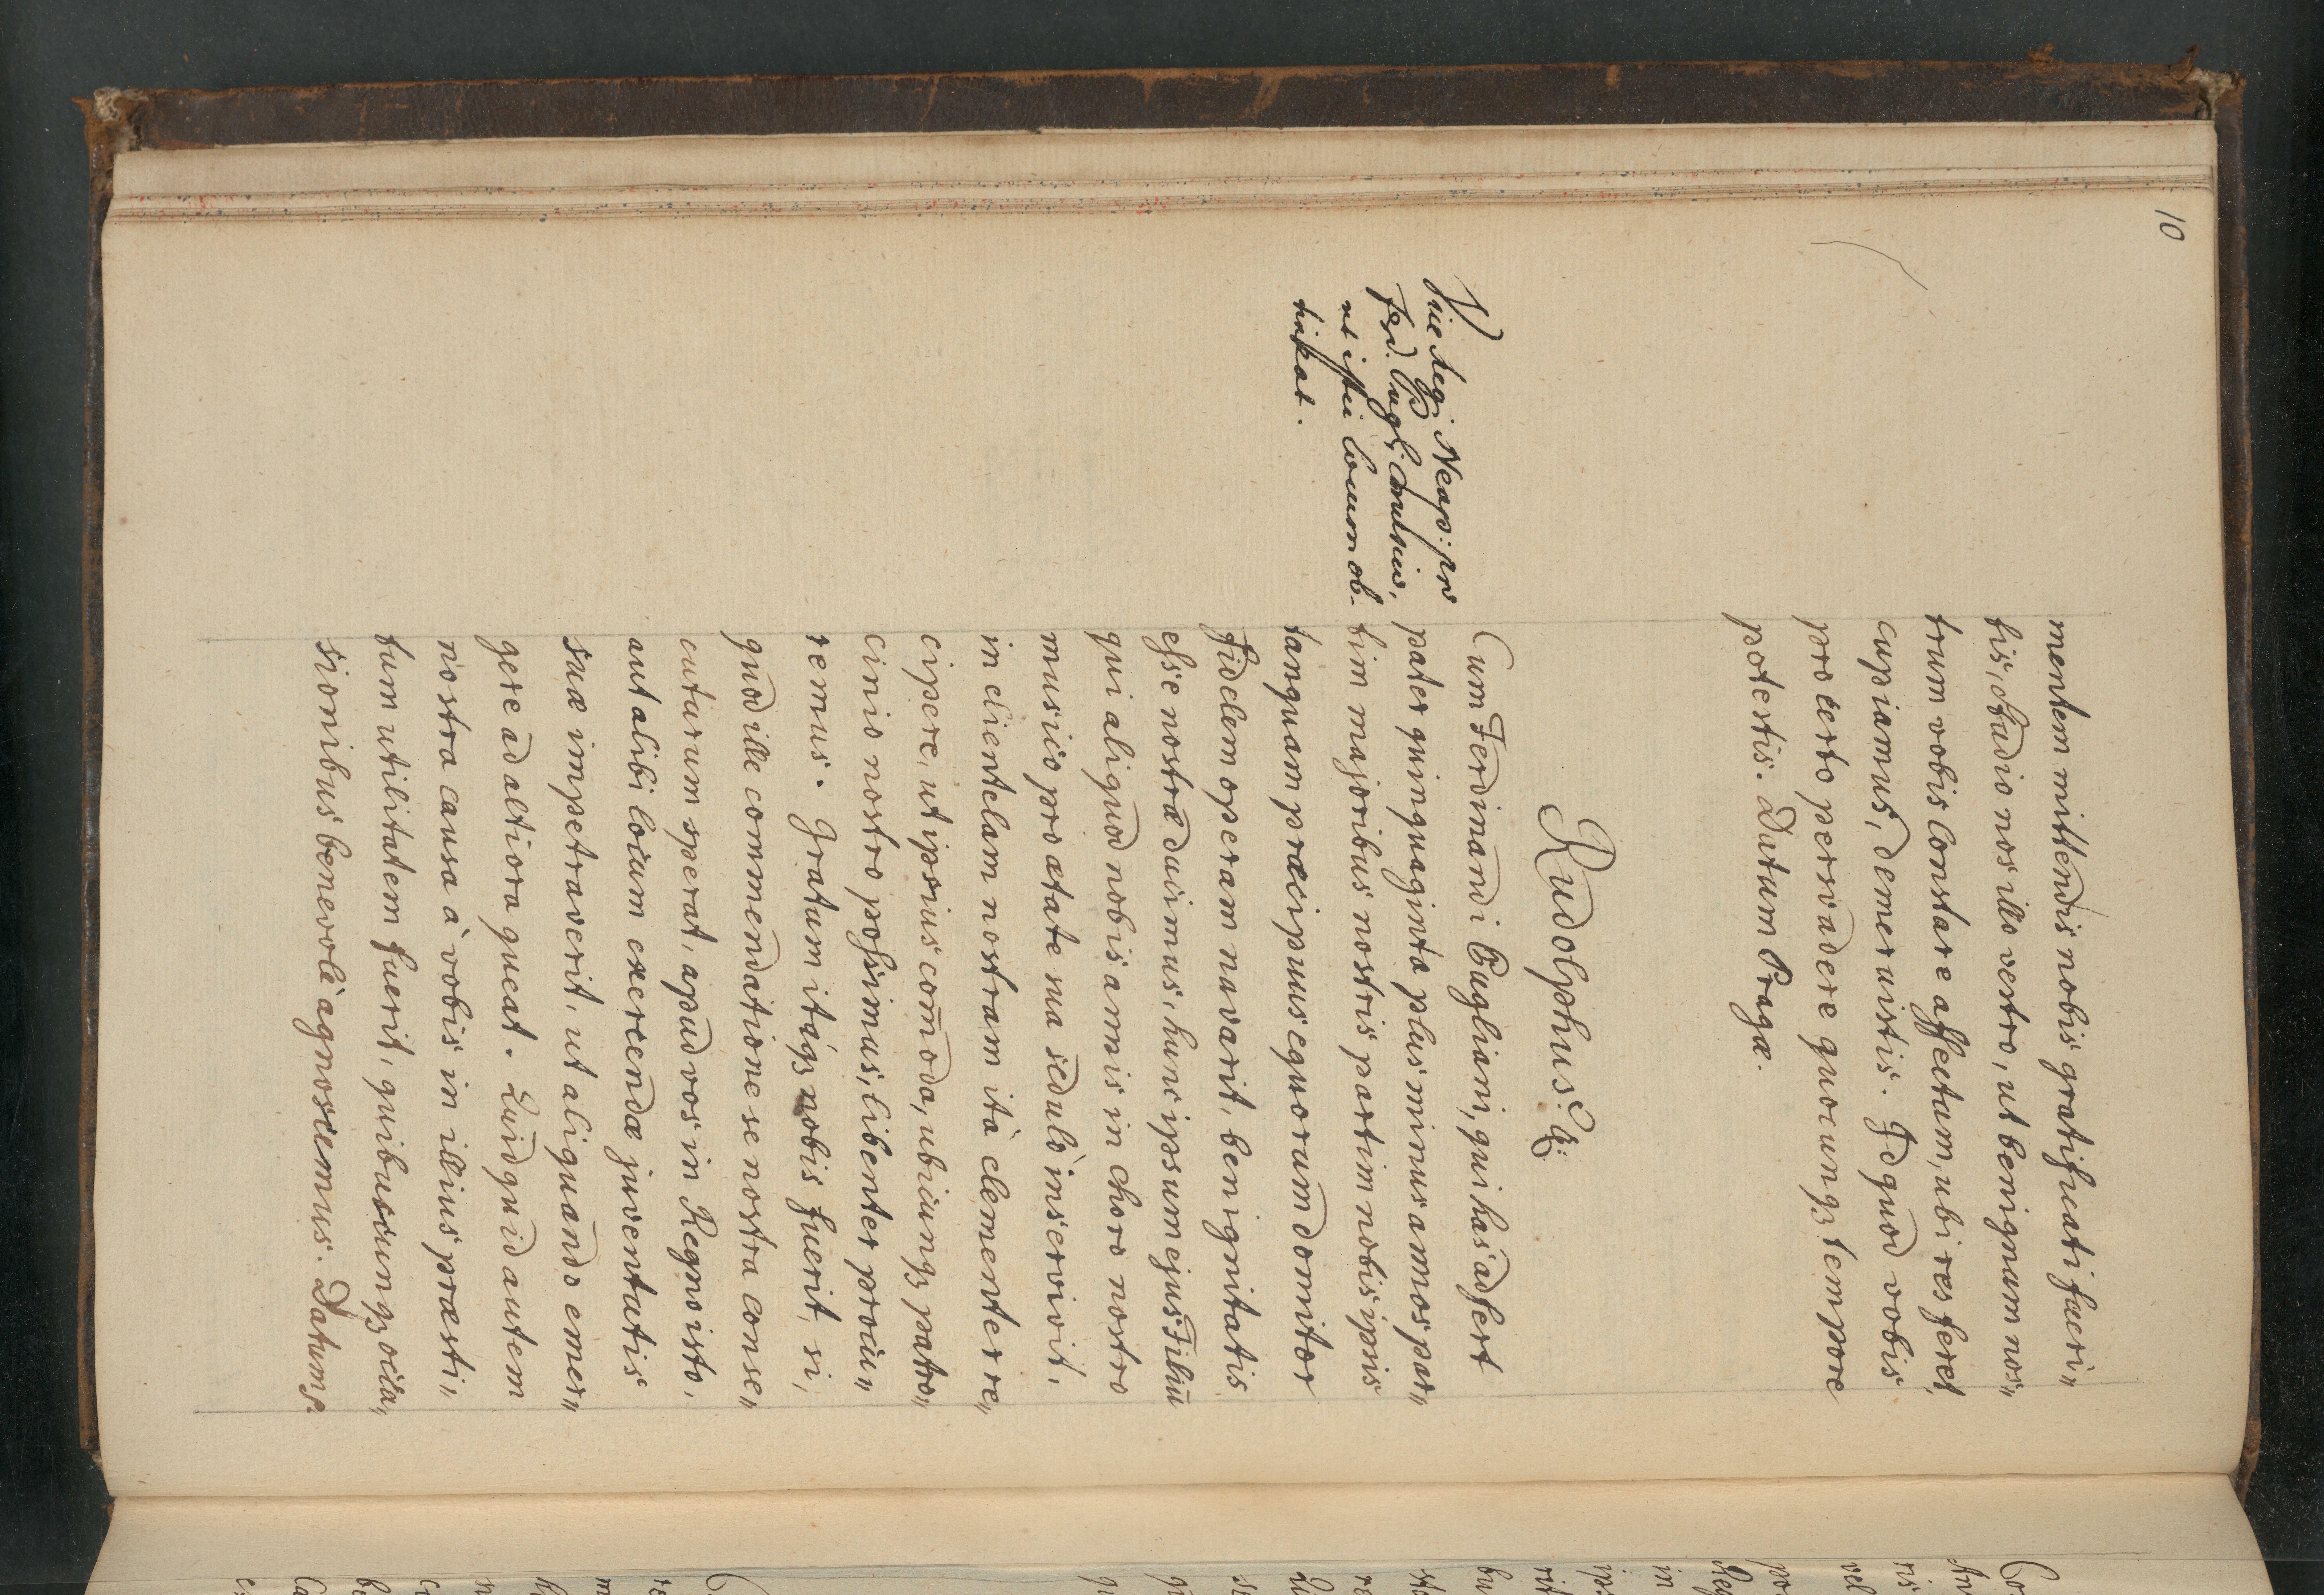 10
mentem mittendis nobis gratificati fueri„
tis, studio nos illo vestro, ut benignum nos„
trum vobis constare affectum, ubi res feret,
cupiamus, demeruistis. Id quod vobis
pro certo persvadere quocunqꝫ tempore
potestis. Datum Pragæ.
Rudolphus
Vice Regi Neap: pro
Ferd. Pugl:
ut istic locum ob-
tineat.
Cum Ferdinandi Pugliani, qui has adfert
pater quinquaginta plus minus annos par„
tim majoribus nostris partim nobis ipsis
tanquam præcipuus equorum domitor
fidelem operam navarit, benignitatis
esse nostræ duximus, hunc ipsum ejus Filiū
qui aliquod nobis annis in choro nostro
musico pro ætate sua sedulò inservivit,
in clientelam nostram ità clementer re„
cipere, ut ipsius com̄oda, ubicunqꝫ patro„
cinio nostro possimus, libenter procu„
remus. Gratum itaqꝫ nobis fuerit, si,
quod ille commendatione se nostra conse„
cuturum sperat, apud vos in Regno isto,
aut alibi locum exercendæ juventutis
suæ impetraverit, ut aliquando emer„
gere ad altiora queat. Quidquid autem
nostra causa à vobis in illius præsti„
tum utilitatem fuerit, quibuscunqꝫ occa„
sionibus benevolè agnoscemus. Datum ꝛc.